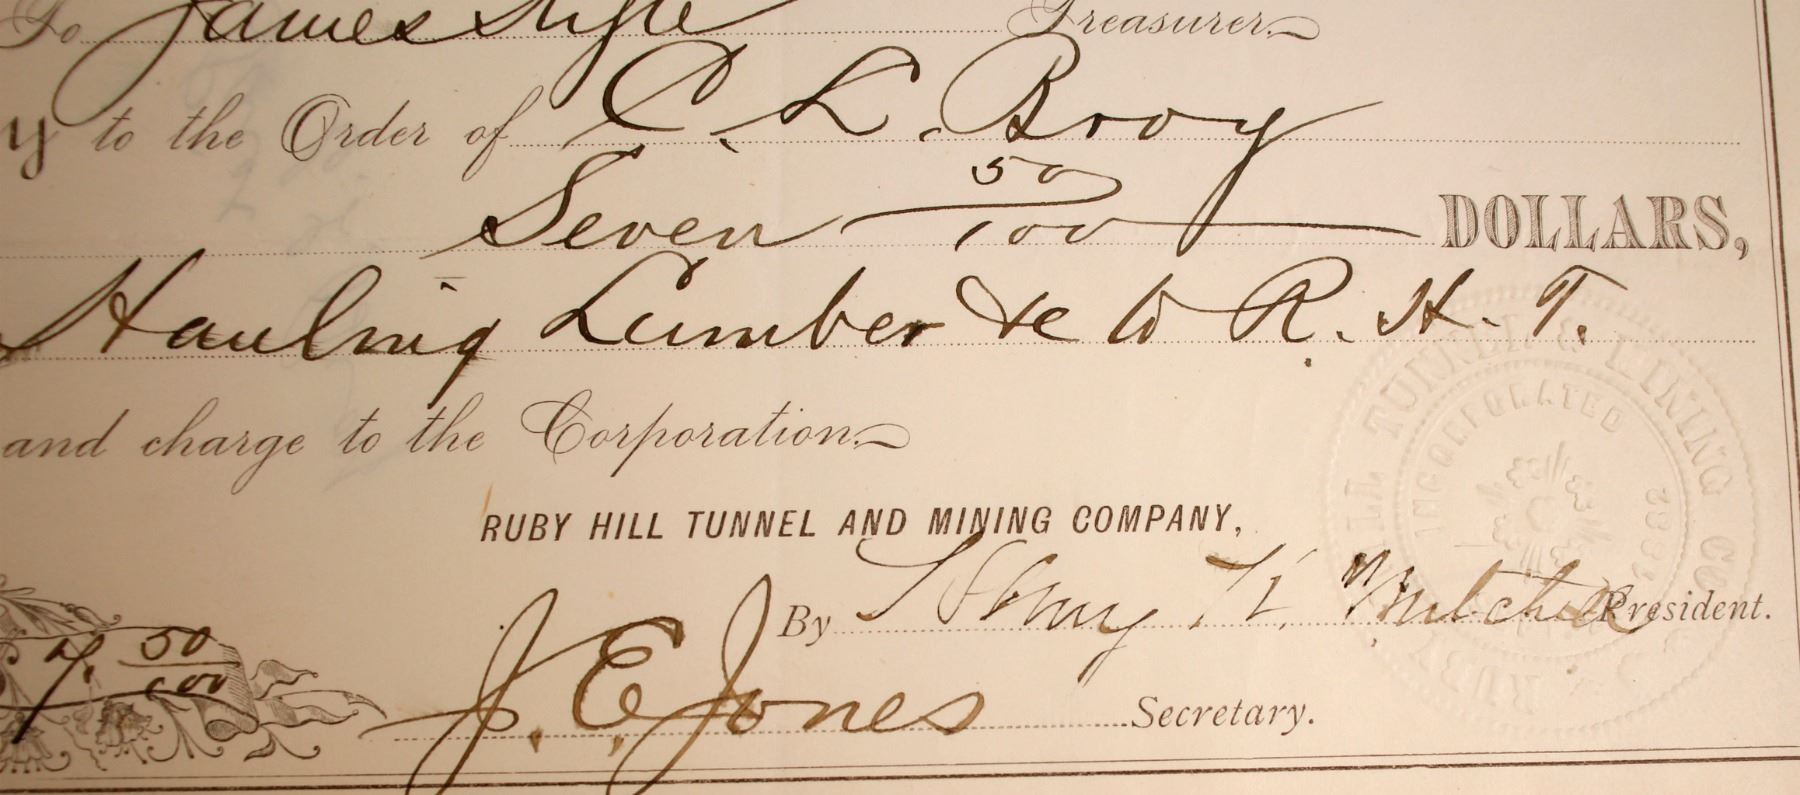 To James Kyle Treasurer.
y to the Order of C. L. Broy
Seven 50/100 DOLLARS,
Hauling Lumber &c to R. H. T.
and charge to the Corporation.
RUBY HILL TUNNEL AND MINING COMPANY,
By Henry K. Mitchell President.
7. 50/100
J. E. Jones Secretary.
RUBY HILL TUNNEL & MINING CO
INCORPORATED